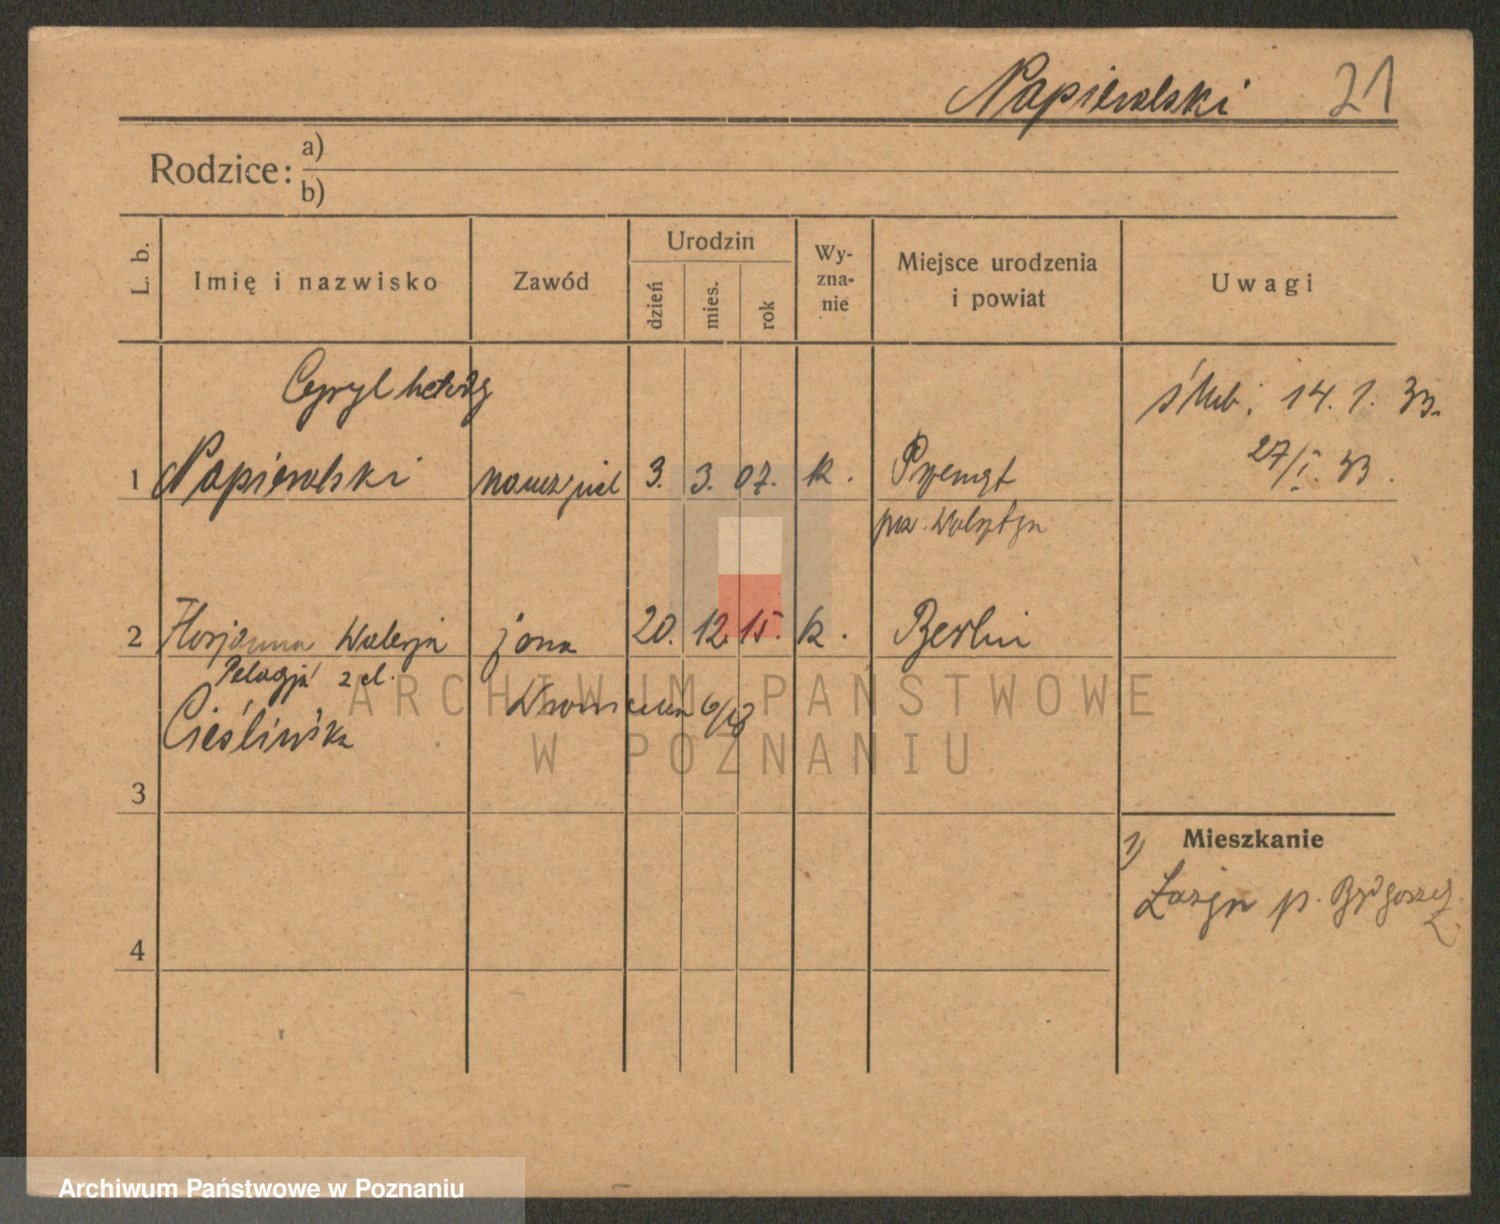 Napieralski 21
Rodzice: a)
b)
L. b.
Imię i nazwisko
Zawód
Urodzin
dzień
mies.
rok
Wy-
zna-
nie
Miejsce urodzenia
i powiat
Uwagi
Cyryl
ślub. 14. 1. 33.
1 Napieralski nauczyciel 3. 3. 07. k. Przemęt
27/I. 33.
pow. Wolsztyn
2 Florjanna Walerja żona 20. 12. 15. k. Berlin
Pelagja z d.
Cieślińska
3
4
Mieszkanie
1)
p. Bydgoszcz
ARCHIWUM PAŃSTWOWE
W POZNANIU
Archiwum Państwowe w Poznaniu